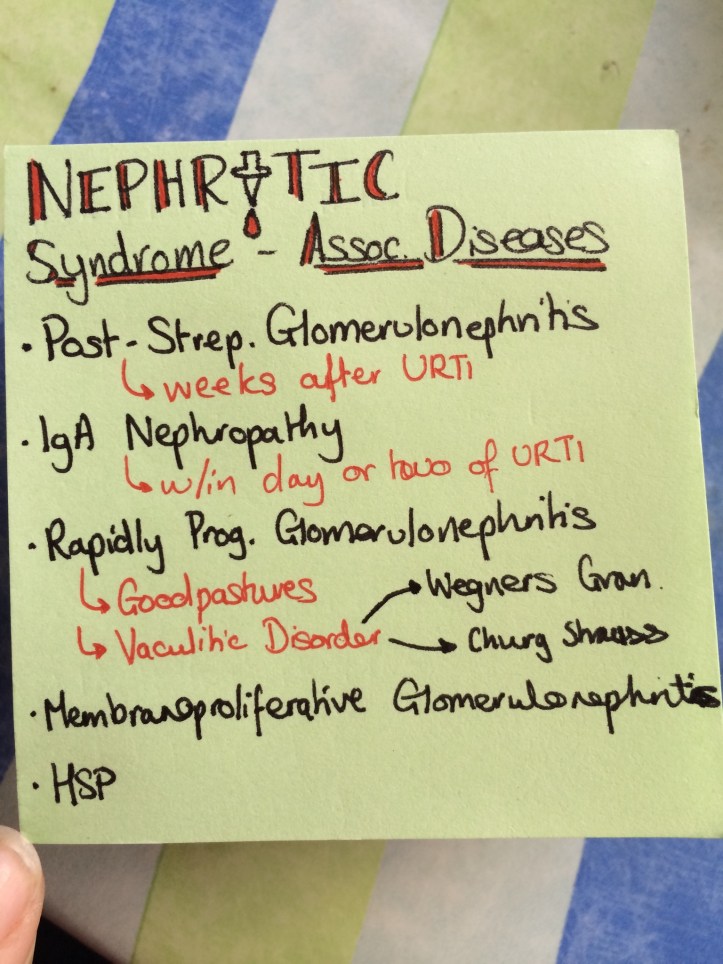 NEPHRITIC
Syndrome - Assoc. Diseases
· Post-Strep. Glomerulonephritis
↳ weeks after URTi
· IgA Nephropathy
↳ w/in day or two of URTI
· Rapidly Prog. Glomerulonephritis
↳ Goodpastures
↳ Vaculitic Disorder → Wegners Gran.
→ Churg Strauss
· Membranoproliferative Glomerulonephritis
· HSP